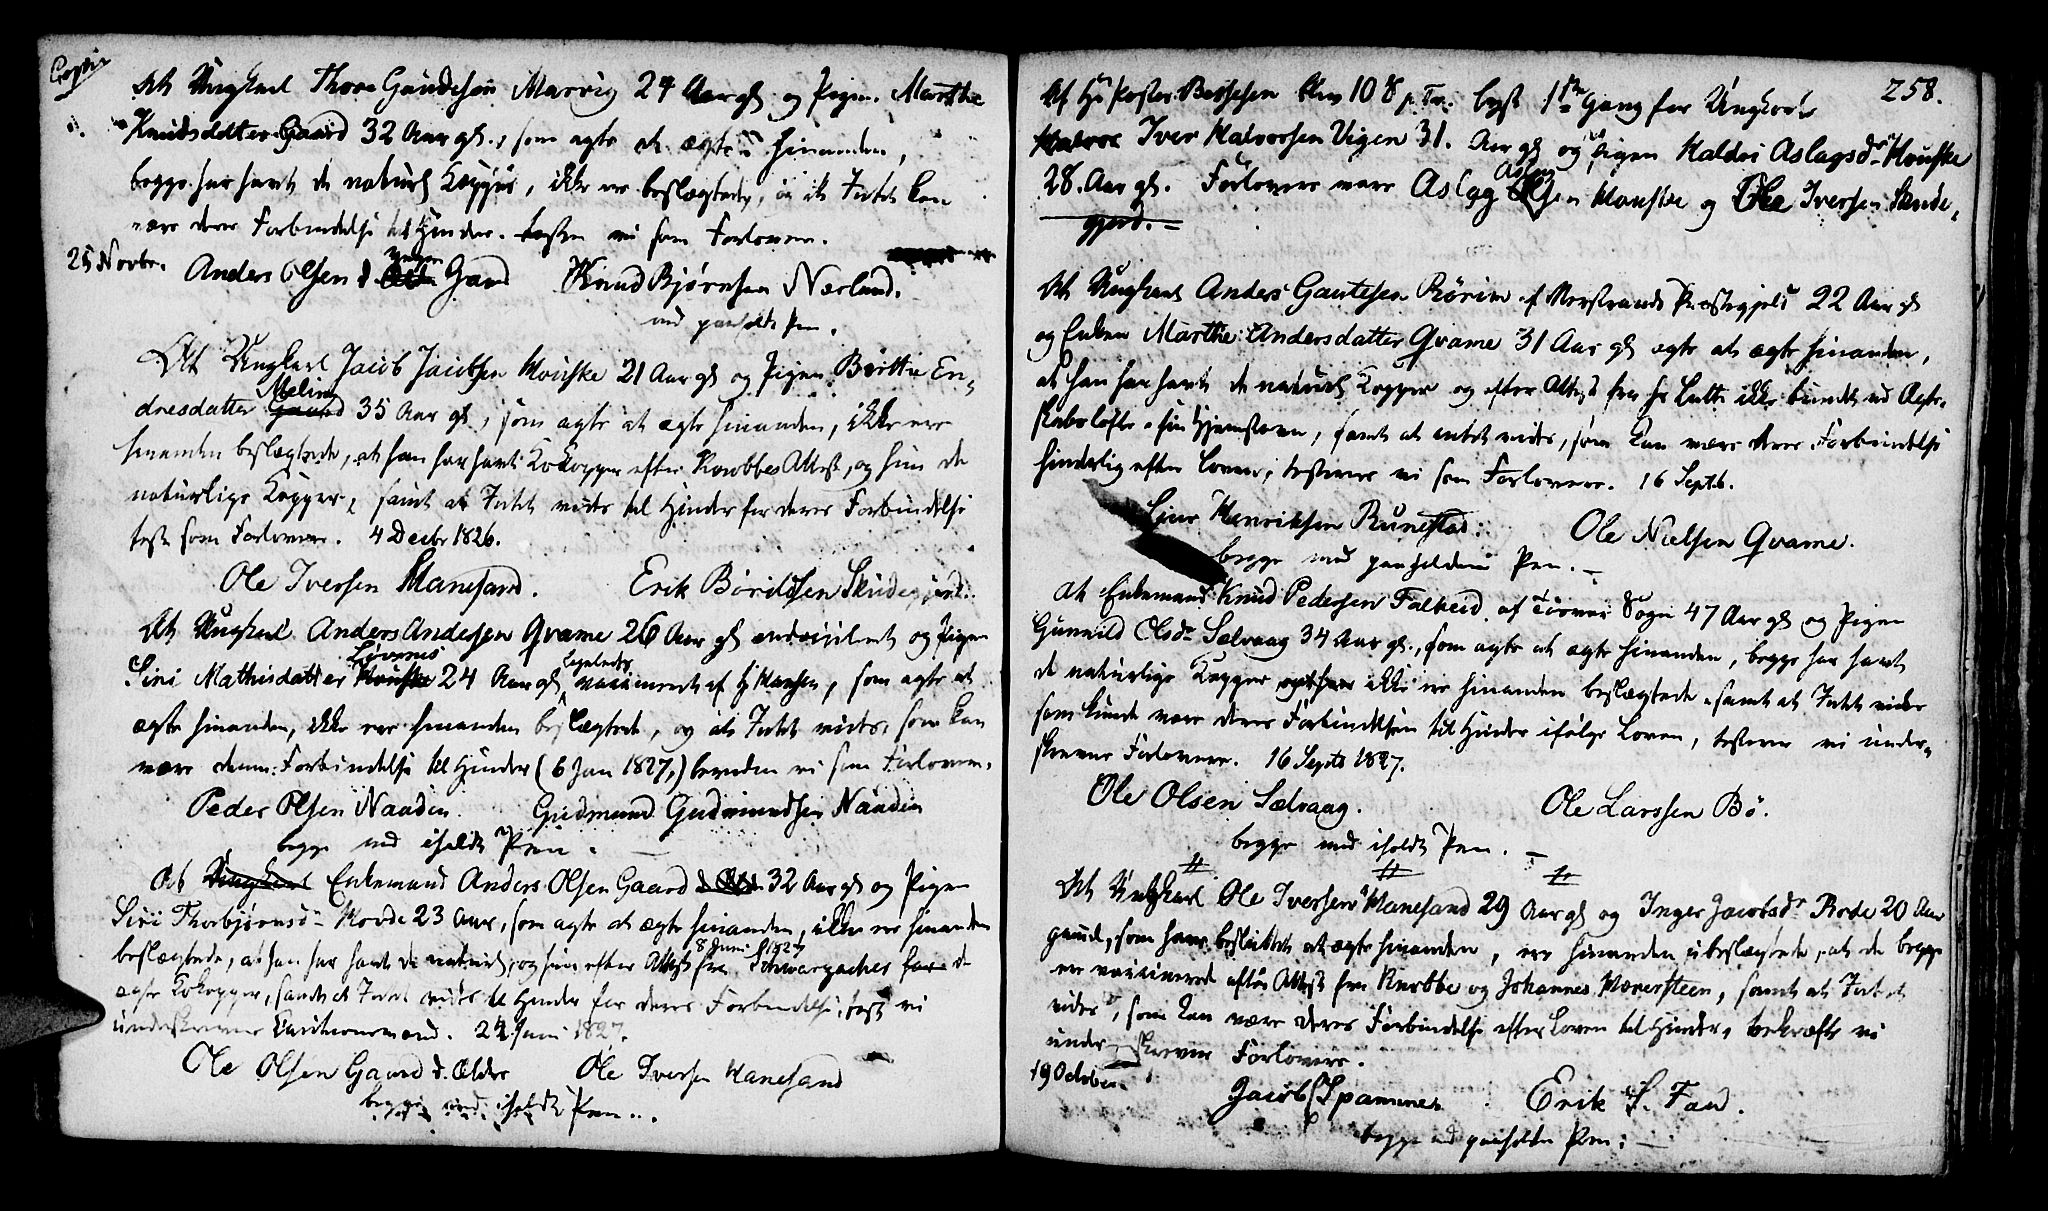 Copie
At Ungkarl Thore Gaudesen Marvig 24 Aar gl og Pigen Marthe
Knudsdatter Gaard 32 Aar gl., som agte at ægte hinanden,
begge har havt de naturl Kopper, ikke ere beslægtede, og at Intet kan
være deres Forbindelse til Hinder. teste vi som Forlovere.
25 Novbr. Anders Olsen d yngre Gaard Knud Bjørnsen Nærland.
med paaholdt Pen.
At Ungkarl Jacob Jacobsen Houske 21 Aar gl og Pigen Birthe En-
dresdatter Meling 35 Aar gl, som agte at ægte hinanden, ikke ere
hinanden beslægtede, at han har havt Kokopper efter Knobbes Attest, og hun de
naturlige Kopper, samt at Intet vides til Hinder for deres Forbindelse
teste som Forlovere. 4 Decbr 1826.
Ole Iversen Hanesand. Erik Børildsen Skudegjerd.
At Ungkarl Anders Andersen Qvame 26 Aar gl og Pigen
Siri Mathisdatter Løvenes 24 Aar gl, vaccineret af Hr Hansen, som agte at
ægte hinanden, ikke ere hinanden beslægtede, og at Intet vides, som kan
være deres Forbindelse til Hinder (6 Jan 1827,) vi som Forlovere.
Peder Olsen Naaden Gudmund Gudmundsen Naaden
begge med iholdt Pen.
At Enkemand Anders Olsen Gaard 32 Aar gl og Pigen
Siri Thorbjørnsdr Hovde 23 Aar, som agte at ægte hinanden, ikke ere hinanden
beslægtede, at han har havt de naturl, og hun efter Attest fra Schwarzacher 8 Juni 1827 de
ægte Kokopper, samt at Intet vides til Hinder for deres Forbindelse, teste vi
underskrevne Cautionsmænd. 24 Juni 1827.
Ole Olsen Gaard d. Ældre Ole Iversen Hanesand
begge med iholdt Pen.
258.
Af Hr Pastor blev 108 p. Tr. lyst 1ste Gang for Ungkarl
Iver Halvorsen Vigen 31. Aar gl og Pigen Maldri Aslagsdr Houske
28. Aar gl. Forlovere vare Aslag Aslagsen Houske og Ole Iversen Skude-
gjerd.
At Ungkarl Anders Gautesen Rørim af Nerstrands Præstegjeld 22 Aar gl
og Enken Marthe Andersdatter Qvame 31 Aar gl agte at ægte hinanden,
at han har havt de naturl Kopper og efter Attest fra Hr ikke bundet ved Ægte-
skabsløfte i sin Hjemstavn, samt at intet vides, som kan være deres Forbindelse
hinderlig efter Loven, testerer vi som Forlovere. 16 Septb.
Henriksen Runestad. Ole Nielsen Qvame.
begge med paaholden Pen.
At Enkemand Knud Pedersen Falkeid af Torvæ Sogn 47 Aar gl og Pigen
Gunvild Olsdr Sælvaag 34 Aar gl., som agte at ægte hinanden, begge har havt
de naturlige Kopper ikke ere hinanden beslægtede, samt at Intet vides
som kunde være deres Forbindelsen til Hinder ifølge Loven, testerer vi under-
skrevne Forlovere. 16 Septb 1827.
Ole Olsen Sælvaag. Ole Larssen Bø.
begge med iholdt Pen.
At Ungkarl Ole Iversen Hanesand 29 Aar gl og Inger Jacobsdr Rode 20 Aar
gamml, som have besluttet at ægte hinanden, ere hinanden ubeslægtede, at de begge
ere vaccinerede efter Attest fra Knobbe og Johannes Mæversteen, samt at Intet
vides, som kan være deres Forbindelse efter Loven til Hinder, bekræfte vi
underskrevne Forlovere.
19 October.
Jacob Spanne Erik S. Fad.
begge med paaholden Pen.